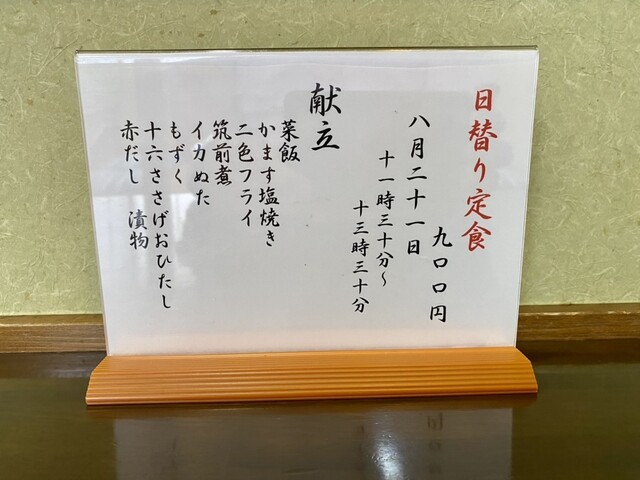 日替り定食
九〇〇円
八月二十一日
十一時三十分〜
十三時三十分
献立
菜飯
かます塩焼き
二色フライ
筑前煮
イカぬた
もずく
十六ささげおひたし
赤だし 漬物